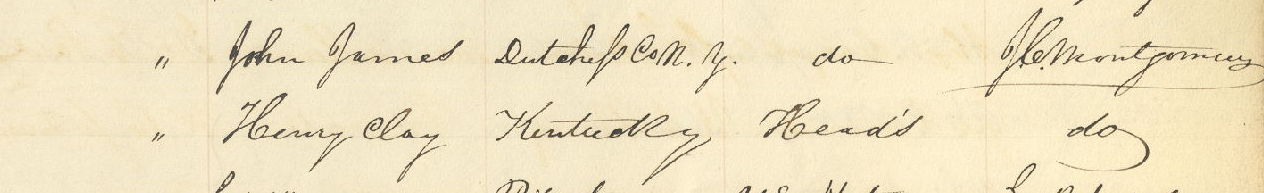 " John James Dutchess Co N. Y. do J. C. Montgomery
" Henry Clay Kentucky Head's do